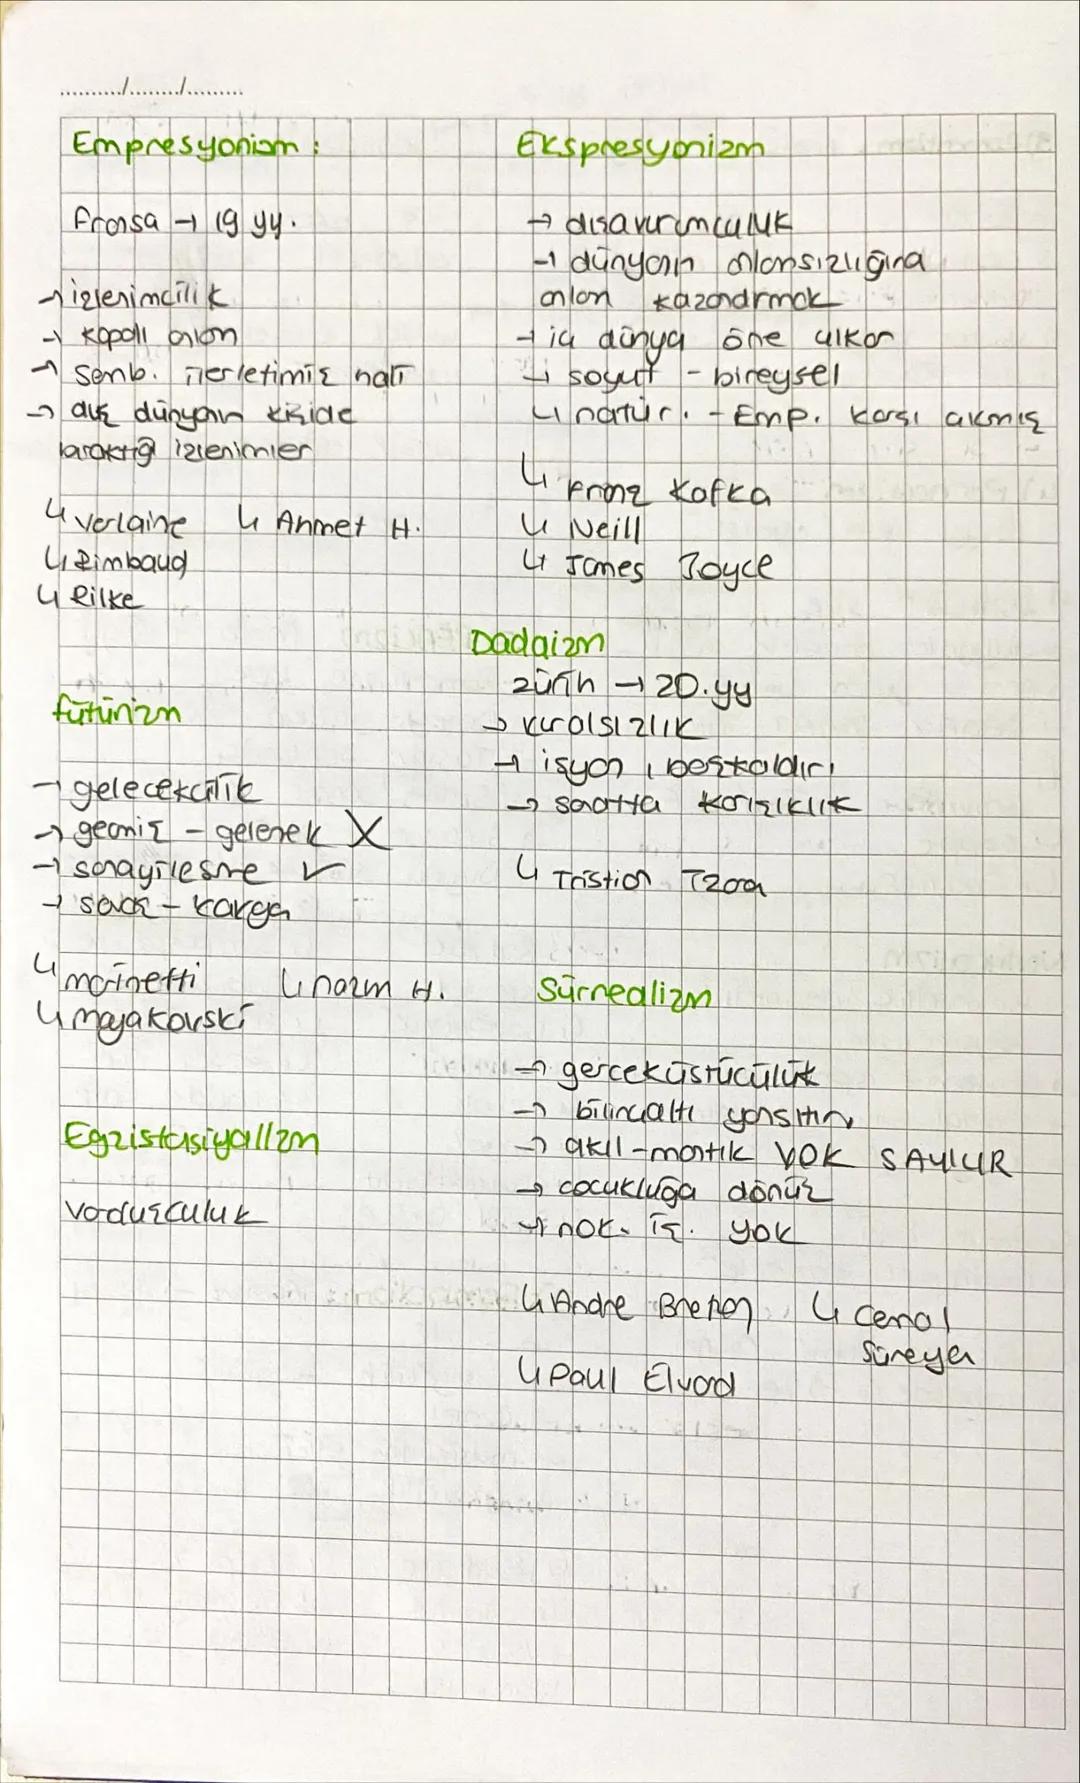 ........../......../.........
Empresyonizm :
Fransa → 19 yy.
→ izlenimcilik
→ kapalı anlam
→ Semb. ilerletimiş hali
→ dış dünyanın kişide
bıraktığı izlenimler
↳ Verlaine ↳ Ahmet H.
↳ Rimbaud
↳ Rilke
fütürizm
→ gelecekcilik
→ gecmiş - gelenek X
→ sanayileşme ✓
→ savaş - kavga
↳ marinetti ↳ nazım H.
↳ mayakovski
Egzistasiyalizm
varoluşculuk
Ekspresyonizm
→ dışavurumculuk
→ dünyanın anlamsızlığına
anlam kazandırmak
→ iç dünya öne çıkar
→ soyut - bireysel
↳ natür. - Emp. karşı çıkmış
↳ Franz Kafka
↳ Neill
↳ James Joyce
Dadaizm
zürih → 20.yy
→ kuralsızlık
→ isyan, başkaldırı
→ sanatta karışıklık
↳ Tristian Tzara
Sürrealizm
→ gerceküstücülük
→ bilinçaltı yansıtılır
→ akıl-mantık YOK SAYILIR
→ cocukluğa dönüş
→ nok. iş. yok
↳ Andre Breton ↳ Cemal
Süreya
↳ Paul Eluard